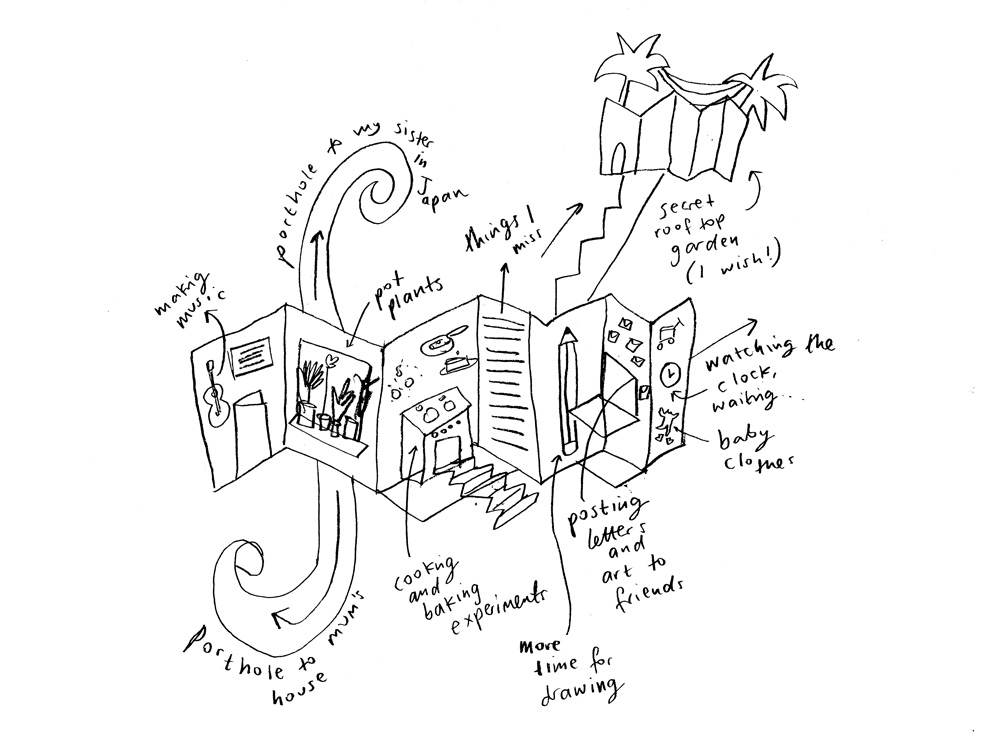 porthole to my sister
in
Japan
things I
miss
secret
rooftop
garden
(I wish!)
making
music
pot
plants
watching the
clock,
waiting...
baby
clothes
posting
letters
and
art to
friends
cooking
and
baking
experiments
more
time for
drawing
Porthole to mum's
house